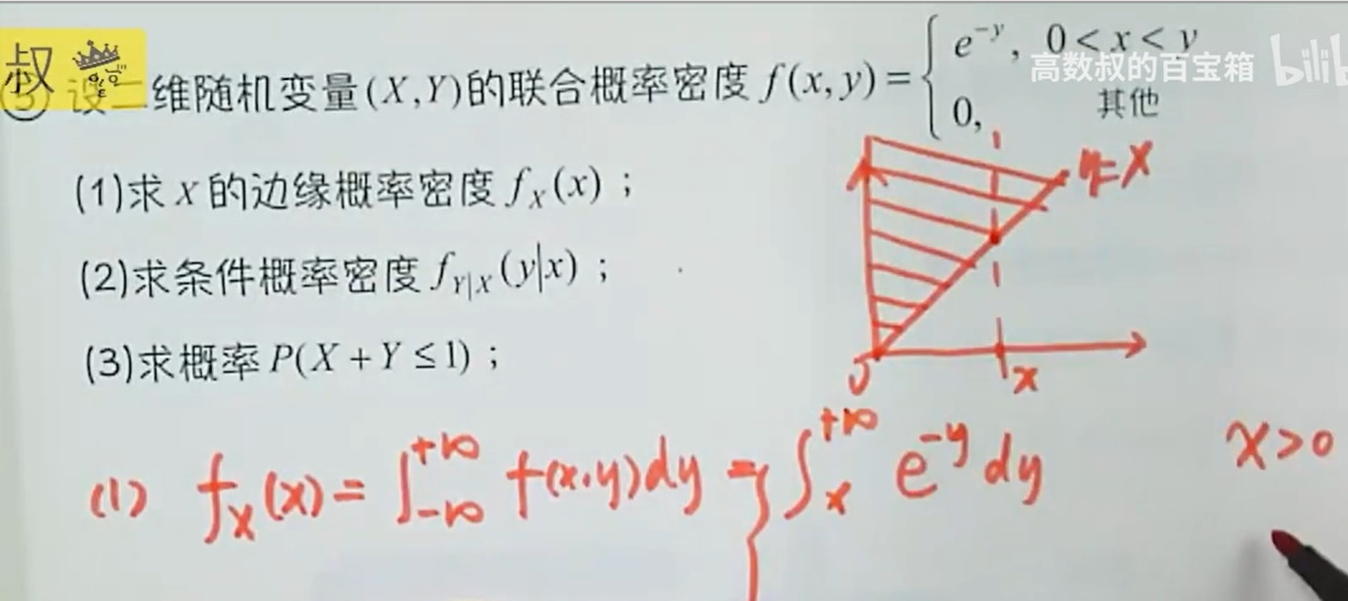 叔
小
高数叔的百宝箱 bilib
③ 设二维随机变量(X,Y)的联合概率密度 f(x,y)={ e^{-y}, 0<x<y
0, 其他
(1)求 X 的边缘概率密度 f_X(x)；
(2)求条件概率密度 f_{Y|X}(y|x)；
(3)求概率 P(X+Y≤1)；
y=x
0
x
(1) f_X(x)=∫_{-∞}^{+∞} f(x,y)dy={ ∫_x^{+∞} e^{-y}dy x>0